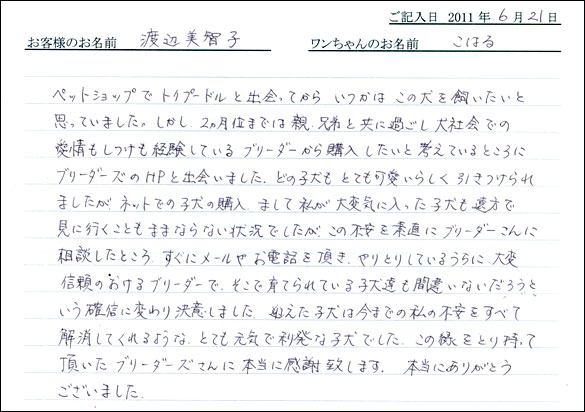 ご記入日 2011年6月21日
お客様のお名前 渡辺美智子 ワンちゃんのお名前 こはる
ペットショップでトイプードルと出会ってから いつかは この犬を飼いたいと
思っていました。しかし、2ヵ月位までは親、兄弟と共に過ごし 犬社会での
愛情もしつけも経験している ブリーダーから購入したいと 考えているところに
ブリーダーズのHPと出会いました。どの子犬も とても可愛いらしく 引きつけられ
ましたが ネットでの子犬の購入、まして私が 大変気に入った子犬も 遠方で
見に行くこともままならない状況でしたが この不安を素直にブリーダーさんに
相談したところ、すぐにメールや お電話を頂き、やりとりしているうちに、大変
信頼のおけるブリーダーで、そこで育てられている子犬達も間違いないだろうと
いう確信に変わり決意しました。迎えた子犬は今までの私の不安をすべて
解消してくれるような、とても元気で利発な子犬でした。この縁をとり持って
頂いたブリーダーズさんに本当に感謝致します。 本当にありがとう
ございました。